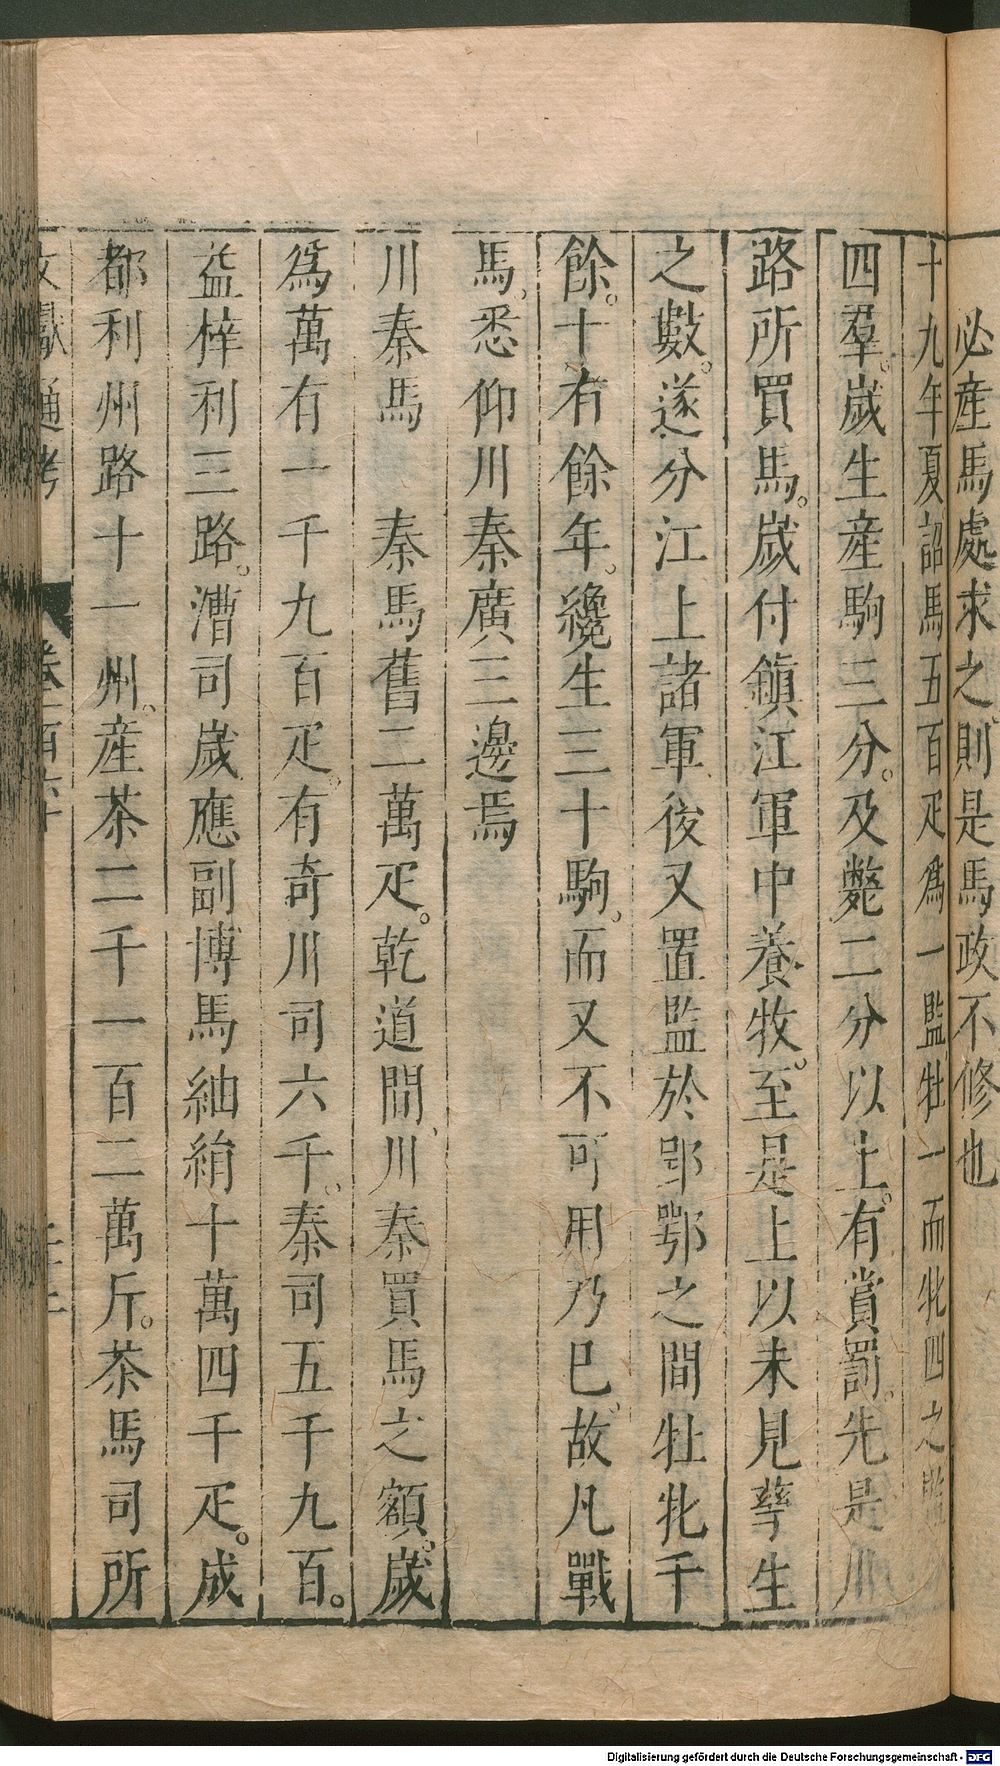 必産馬處求之則是馬政不修也
十九年夏詔馬五百疋爲一監牡一而牝四之監
四羣。歲生産駒三分。及斃二分以上。有賞罰。先是川
路所買馬。歲付鎭江軍中養牧。至是上以未見孳生
之數。遂分江上諸軍後又置監於郢鄂之間牡牝千
餘。十有餘年。纔生三十駒。而又不可用乃已。故凡戰
馬。悉仰川秦廣三邊焉
川秦馬　秦馬舊二萬疋。乾道間、川秦買馬之額。歲
爲萬有一千九百疋。有奇川司六千。秦司五千九百。
益梓利三路。漕司歲應副博馬紬絹十萬四千疋。成
都利州路十一州。産茶二千一百二萬斤。茶馬司所
文獻通考　卷一百六十
Digitalisierung gefördert durch die Deutsche Forschungsgemeinschaft - DFG